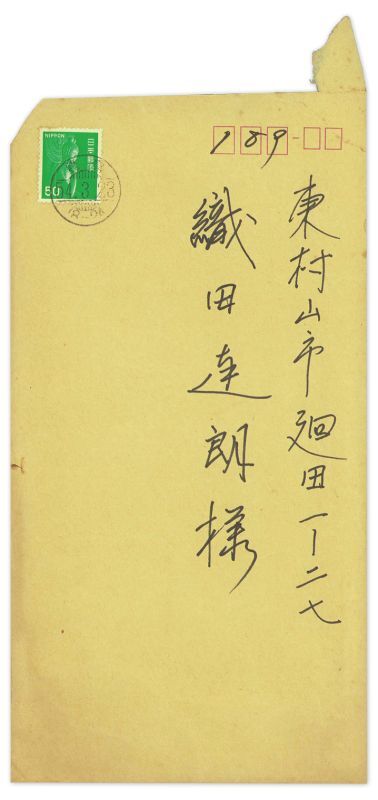 189
東村山市廻田一ー二七
織田達朗様
NIPPON
日本郵便
50
3.23